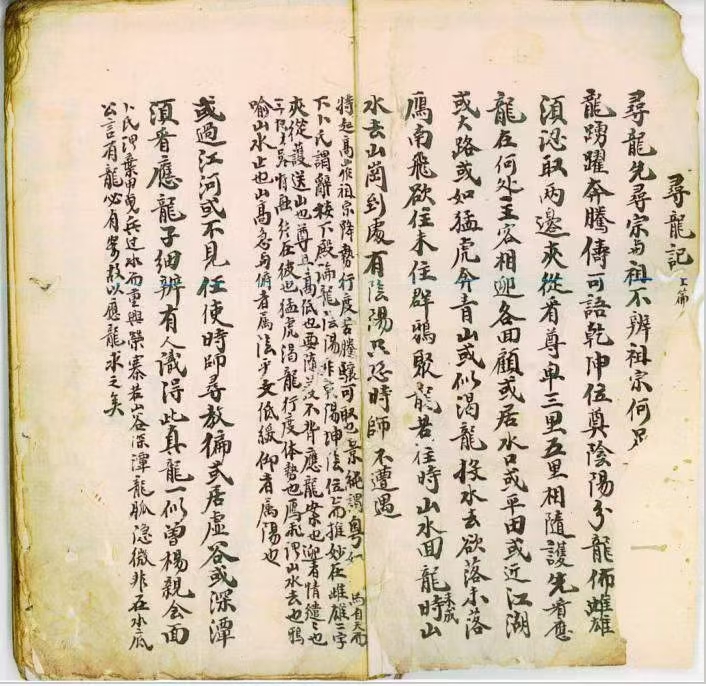 尋龍記 上篇
尋龍先尋宗与祖不辨祖宗何足
龍踴躍奔騰儔可語乾坤位奠陰陽分龍佈雌雄
須認取兩邊夾從看尊卑三里五里相隨護先看應
龍在何处主客相迎各回顧或居水口或平田或近江湖
或大路或如猛虎奔青山或似渴龍投水去欲落未落
未成時
鴈南飛欲住未住群鴉聚龍若住時山水回龍時山
水去山崗到處有陰陽只恐時師不遭遇
特起高崖祖宗降勢行度若騰驤可取也景純謂粤如
馬自天而
下卜氏謂辭樓下殿論龍陰陽非乾陽坤法位上而推妙在雌雄二字
夾從護送山也尊卑高低也要隨從不背應龍案也迎者情繾ミ也
在彼也猛虎渴龍行度体勢也鴈飛謂山水去也鴉
喻山水止也山高急与俯者属陰平支低緩仰者属陽也
或過江河或不見任使時師尋教徧或居虛谷或深潭
須看應龍子細辨有人識得此真龍一似曾楊親会面
卜氏謂棄甲曳兵过水而重興榮寨若山谷深潭龍脈隐微非在水底
公言有龍必有案故以應龍求之矣